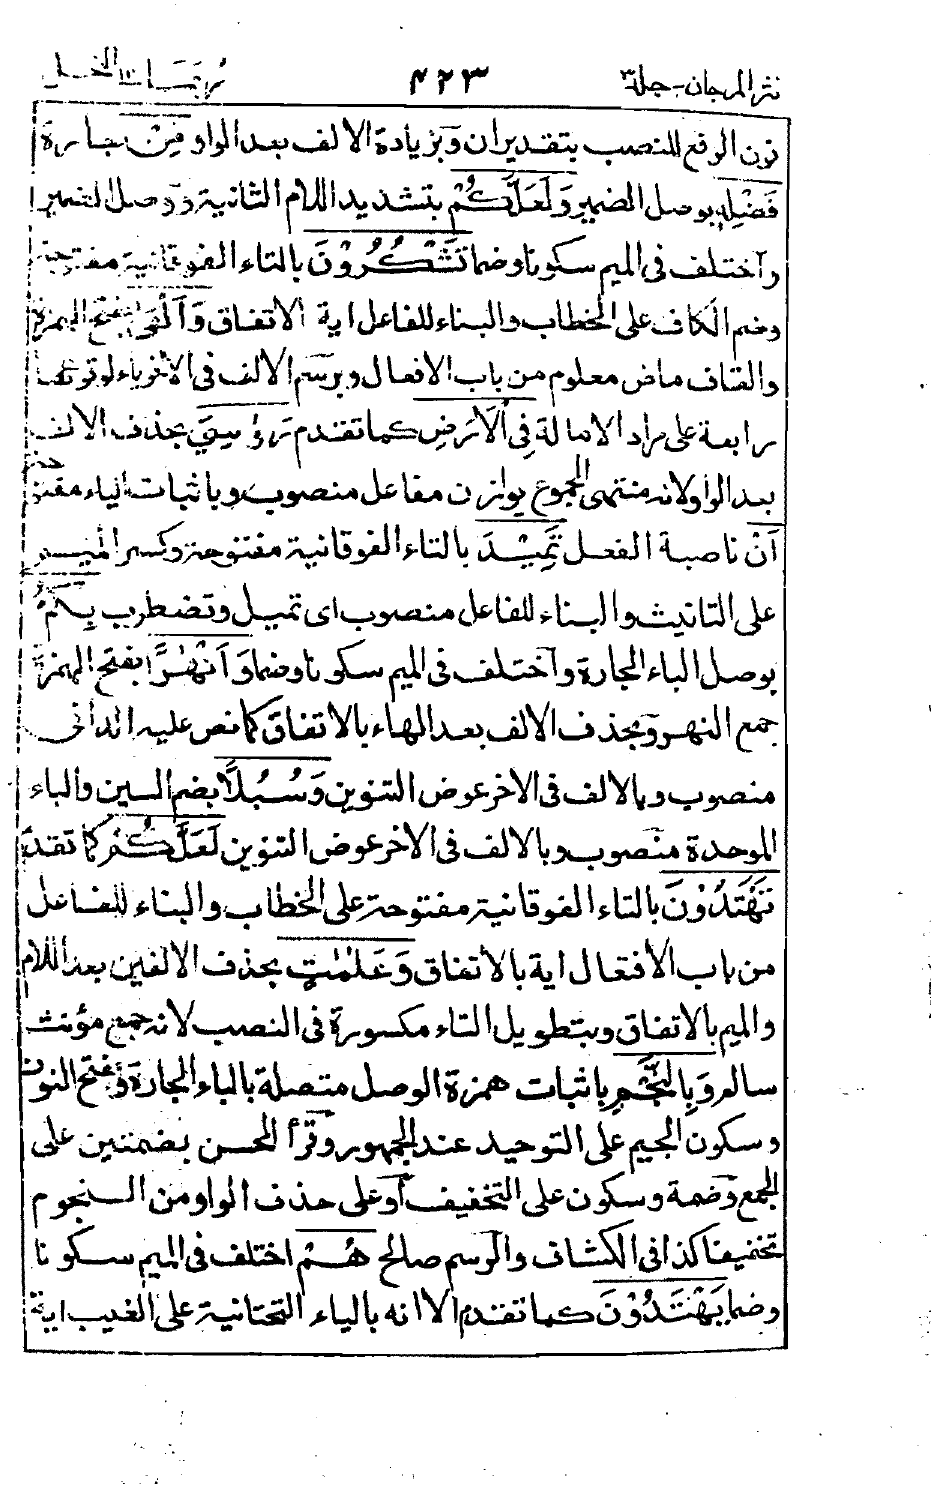 نثر المرجان - جلد ٣ ٤٢٣ النحل
نون الرفع للنصب بتقدير ان وَبزيادة الالف بعد الواو مِنْ جارة
فَضْلِهٖ بوصل الضمير وَلَعَلَّكُمْ بتشديد اللام الثانية وَوصل الضمير
وآختلف فى الميم سكونا وضما تَشْكُرُوْنَ بالتاء الفوقانية مفتوحة
وضم الكاف على الخطاب والبناء للفاعل اية الاتفاق وَاَلْقٰى بفتح الهمزة
والقاف ماض معلوم من باب الافعال وبرسم الالف فى الاخرياء لوقوعها
رابعة على مراد الامالة فِى الْاَرْضِ كما تقدم رَوَاسِيَ بحذف الالف
بعد الواو لانه منتهى الجموع يوازن مفاعل منصوب وباثبات الياء مفتوحة
اَنْ ناصبة الفعل تَمِيْدَ بالتاء الفوقانية مفتوحة وكسر الميم
على التانيث والبناء للفاعل منصوب اى تميل وتضطرب بِكُمْ
بوصل الباء الجارة وآختلف فى الميم سكونا وضما وَاَنْهٰرًا بفتح الهمزة
جمع النهر وَبحذف الالف بعد الهاء بالاتفاق كما نص عليه الدانى
منصوب وبالالف فى الاخر عوض التنوين وَسُبُلًا بضم السين والباء
الموحدة منصوب وبالالف فى الاخر عوض التنوين لَعَلَّكُمْ كما تقدم
تَهْتَدُوْنَ بالتاء الفوقانية مفتوحة على الخطاب والبناء للفاعل
من باب الافتعال اية بالاتفاق وَعَلٰمٰتٍ بحذف الالفين بعد اللام
والميم بالاتفاق وبتطويل التاء مكسورة فى النصب لانه جمع مؤنث
سالم وَبِالنَّجْمِ باثبات همزة الوصل متصلة بالباء الجارة وَفتح النون
وسكون الجيم على التوحيد عند الجمهور وقرأ الحسن بضمتين على
الجمع وَضمة وسكون على التخفيف اَو على حذف الواو من النجوم
تخفيفا كذا فى الكشاف والرسم صالح هُمْ اختلف فى الميم سكونا
وضما يَهْتَدُوْنَ كما تقدم الا انه بالياء التحتانية على الغيب اية